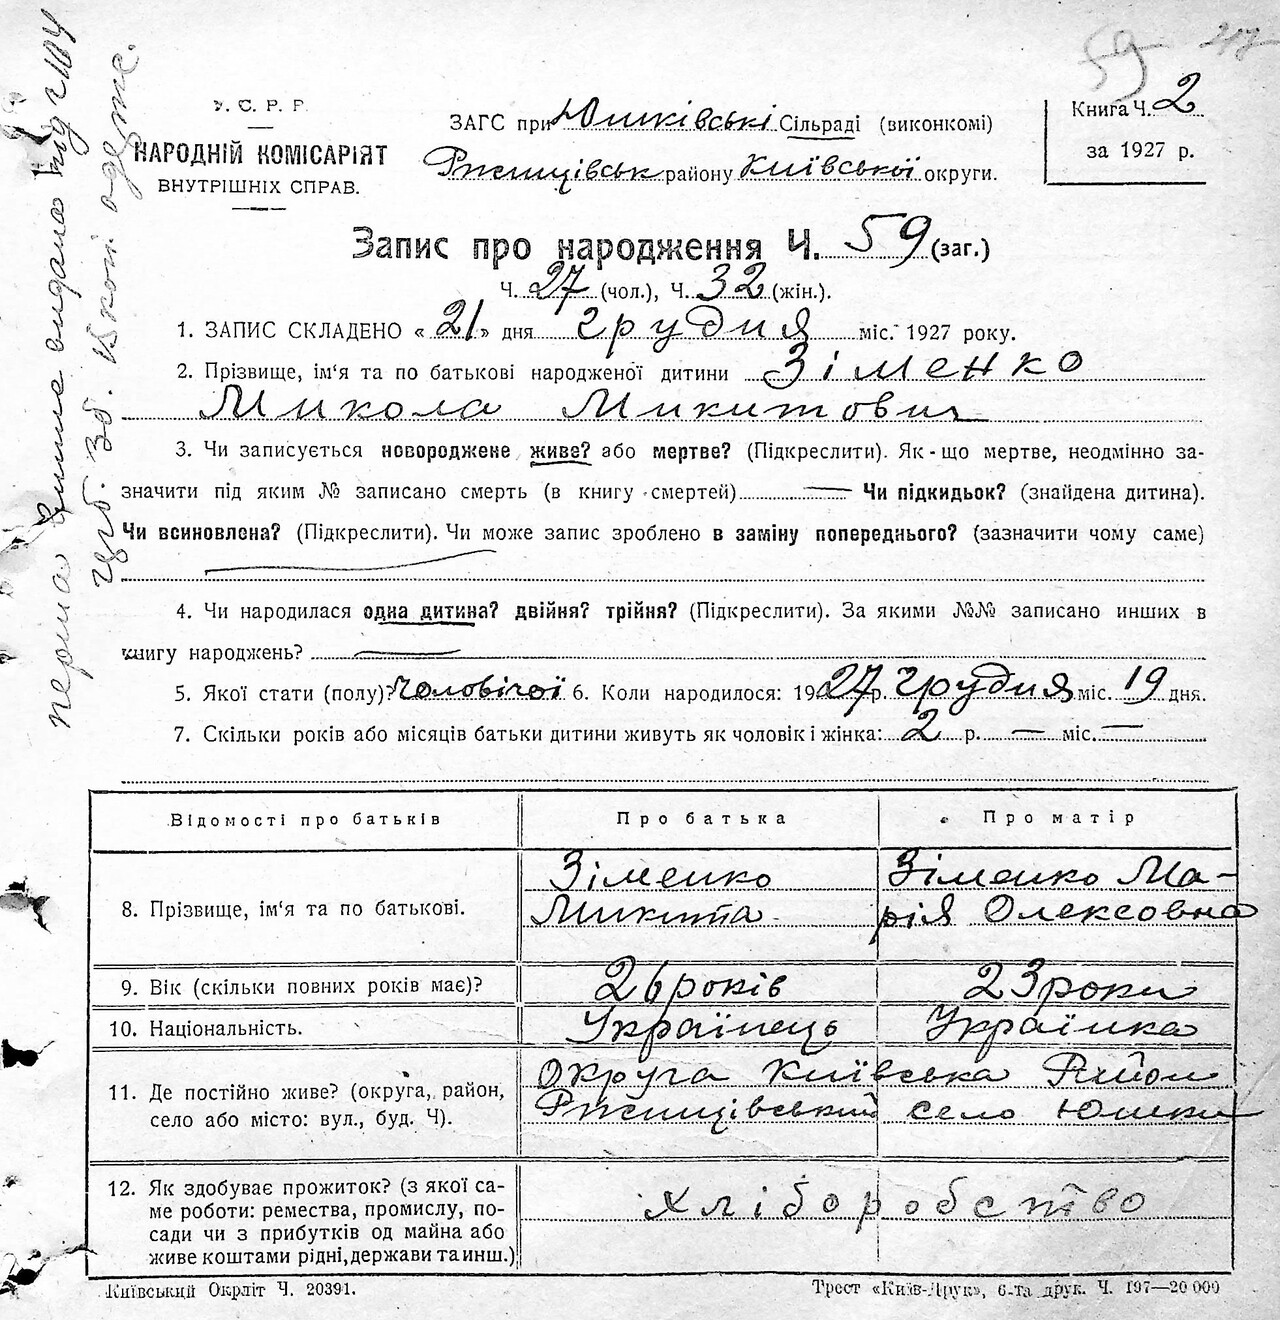 59 217
У. С. Р. Р.
НАРОДНІЙ КОМІСАРІЯТ
ВНУТРІШНІХ СПРАВ.
ЗАГС при Юшківські Сільраді (виконкомі)
Ржищівськ району Київської округи.
Книга Ч. 2
за 1927 р.
Запис про народження Ч. 59 (заг.)
Ч. 27 (чол.), Ч. 32 (жін.).
1. ЗАПИС СКЛАДЕНО «21» дня грудня міс. 1927 року.
2. Прізвище, ім‘я та по батькові народженої дитини Зіменко
Микола Микитович
3. Чи записується новороджене живе? або мертве? (Підкреслити). Як-що мертве, неодмінно за-
значити під яким № записано смерть (в книгу смертей) — Чи підкидьок? (знайдена дитина).
Чи всиновлена? (Підкреслити). Чи може запис зроблено в заміну попереднього? (зазначити чому саме)
4. Чи народилася одна дитина? двійня? трійня? (Підкреслити). За якими №№ записано инших в
книгу народжень? —
5. Якої стати (полу)? Чоловічої 6. Коли народилося: 1927 р. грудня міс. 19 дня.
7. Скільки років або місяців батьки дитини живуть як чоловік і жінка: 2 р. — міс. —
Відомості про батьків Про батька Про матір
8. Прізвище, ім‘я та по батькові. Зіменко Микита Зіменко Ма-
рія Олексовна
9. Вік (скільки повних років має)? 26 років 23 роки
10. Національність. Українець Українка
11. Де постійно живе? (округа, район,
село або місто: вул., буд. Ч). Округа Київська Район
Ржищівський село Юшки
12. Як здобуває прожиток? (з якої са-
ме роботи: ремества, промислу, по-
сади чи з прибутків од майна або
живе коштами рідні, держави та инш.) хліборобство
Київський Окрліт Ч. 20391.
Трест «Київ-Друк», 6-та друк. Ч. 197—20 000
видана під